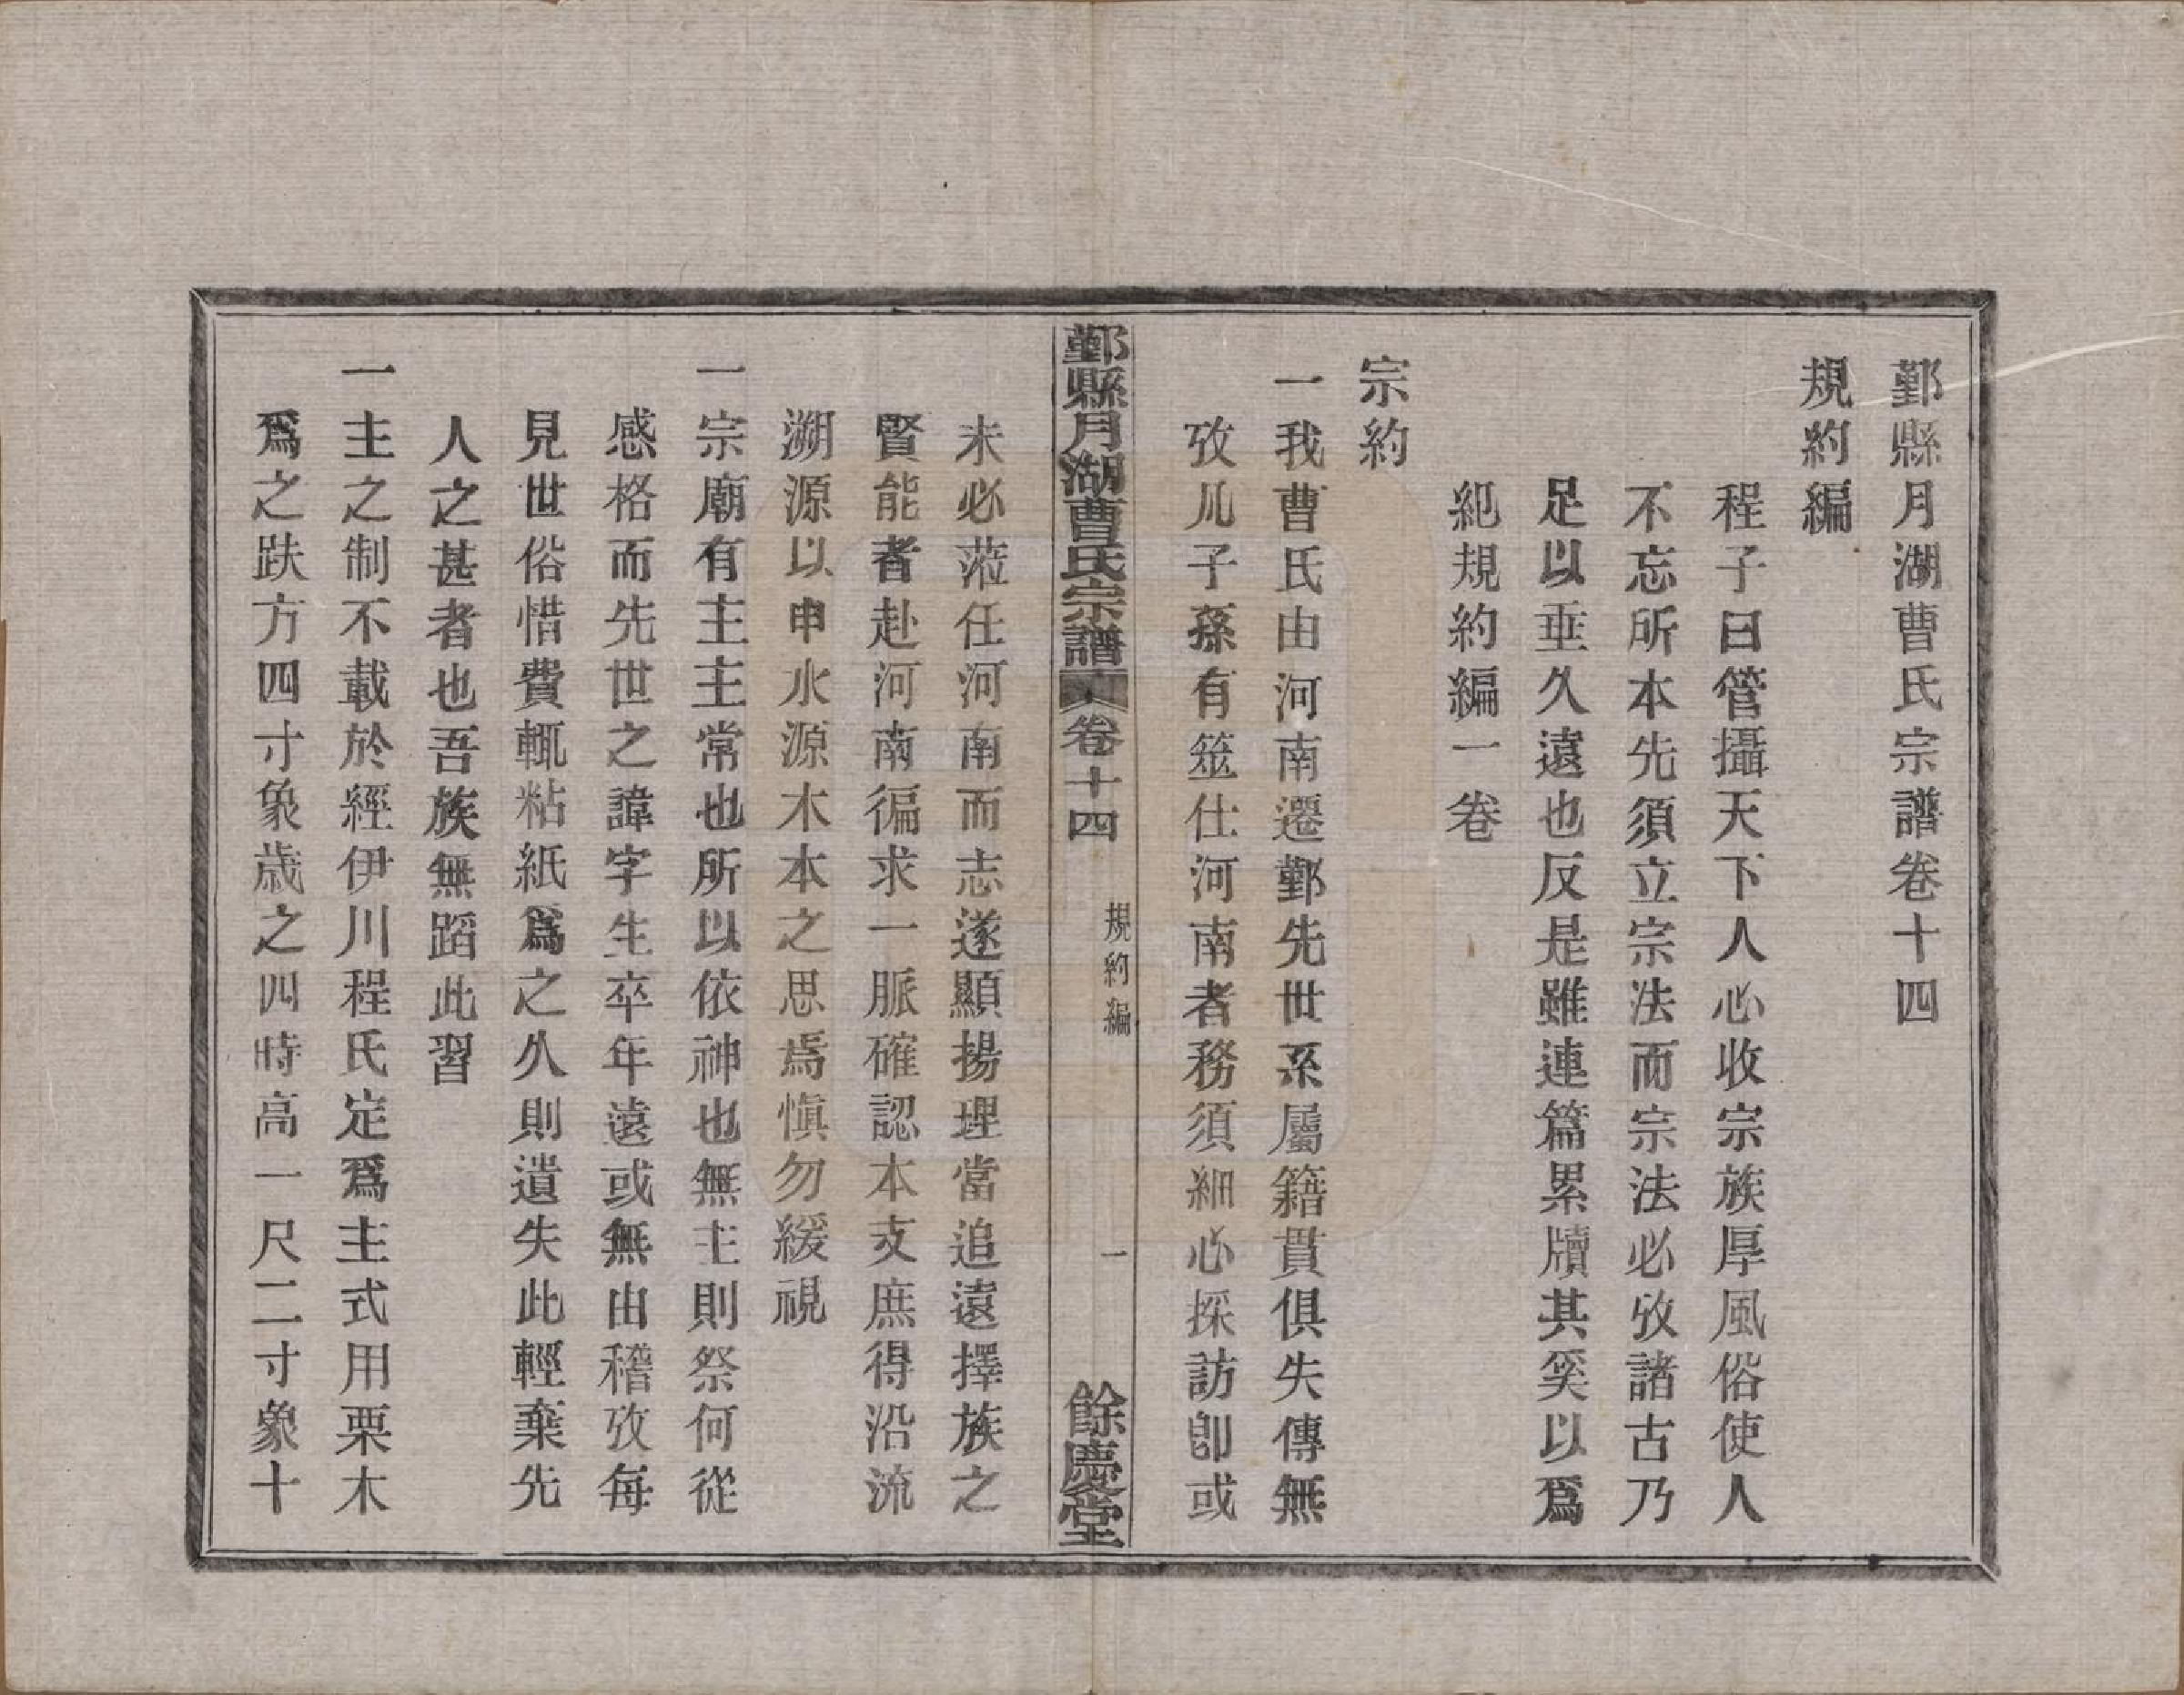 鄞縣月湖曹氏宗譜卷十四
規約編
程子曰管攝天下人心收宗族厚風俗使人
不忘所本先須立宗法而宗法必攷諸古乃
足以垂久遠也反是雖連篇累牘其奚以爲
紀規約編一卷
宗約
一我曹氏由河南遷鄞先世系屬籍貫俱失傳無
攷凡子孫有筮仕河南者務須細心採訪卽或
鄞縣月湖曹氏宗譜 卷十四 規約編 一 餘慶堂
未必蒞任河南而志遂顯揚理當追遠擇族之
賢能者赴河南徧求一脈確認本支庶得沿流
溯源以申水源木本之思焉愼勿緩視
一宗廟有主主常也所以依神也無主則祭何從
感格而先世之諱字生卒年遠或無由稽攷每
見世俗惜費輒粘紙爲之久則遺失此輕棄先
人之甚者也吾族無蹈此習
一主之制不載於經伊川程氏定爲主式用栗木
爲之趺方四寸象歲之四時高一尺二寸象十